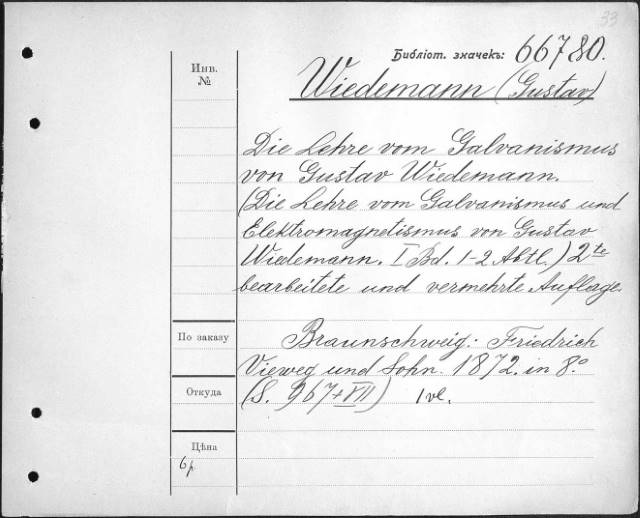 33
Библіот. значекъ: 66780.
Инв.
№
Wiedemann (Gustav)
Die Lehre vom Galvanismus
von Gustav Wiedemann.
(Die Lehre vom Galvanismus und
Elektromagnetismus von Gustav
Wiedemann. I Bd. 1-2 Abtl.) 2te
bearbeitete und vermehrte Auflage.
По заказу
Braunschweig: Friedrich
Vieweg und Sohn. 1872. in 8.º
Откуда
(S. 967+VIII) 1 vl.
Цѣна
6р